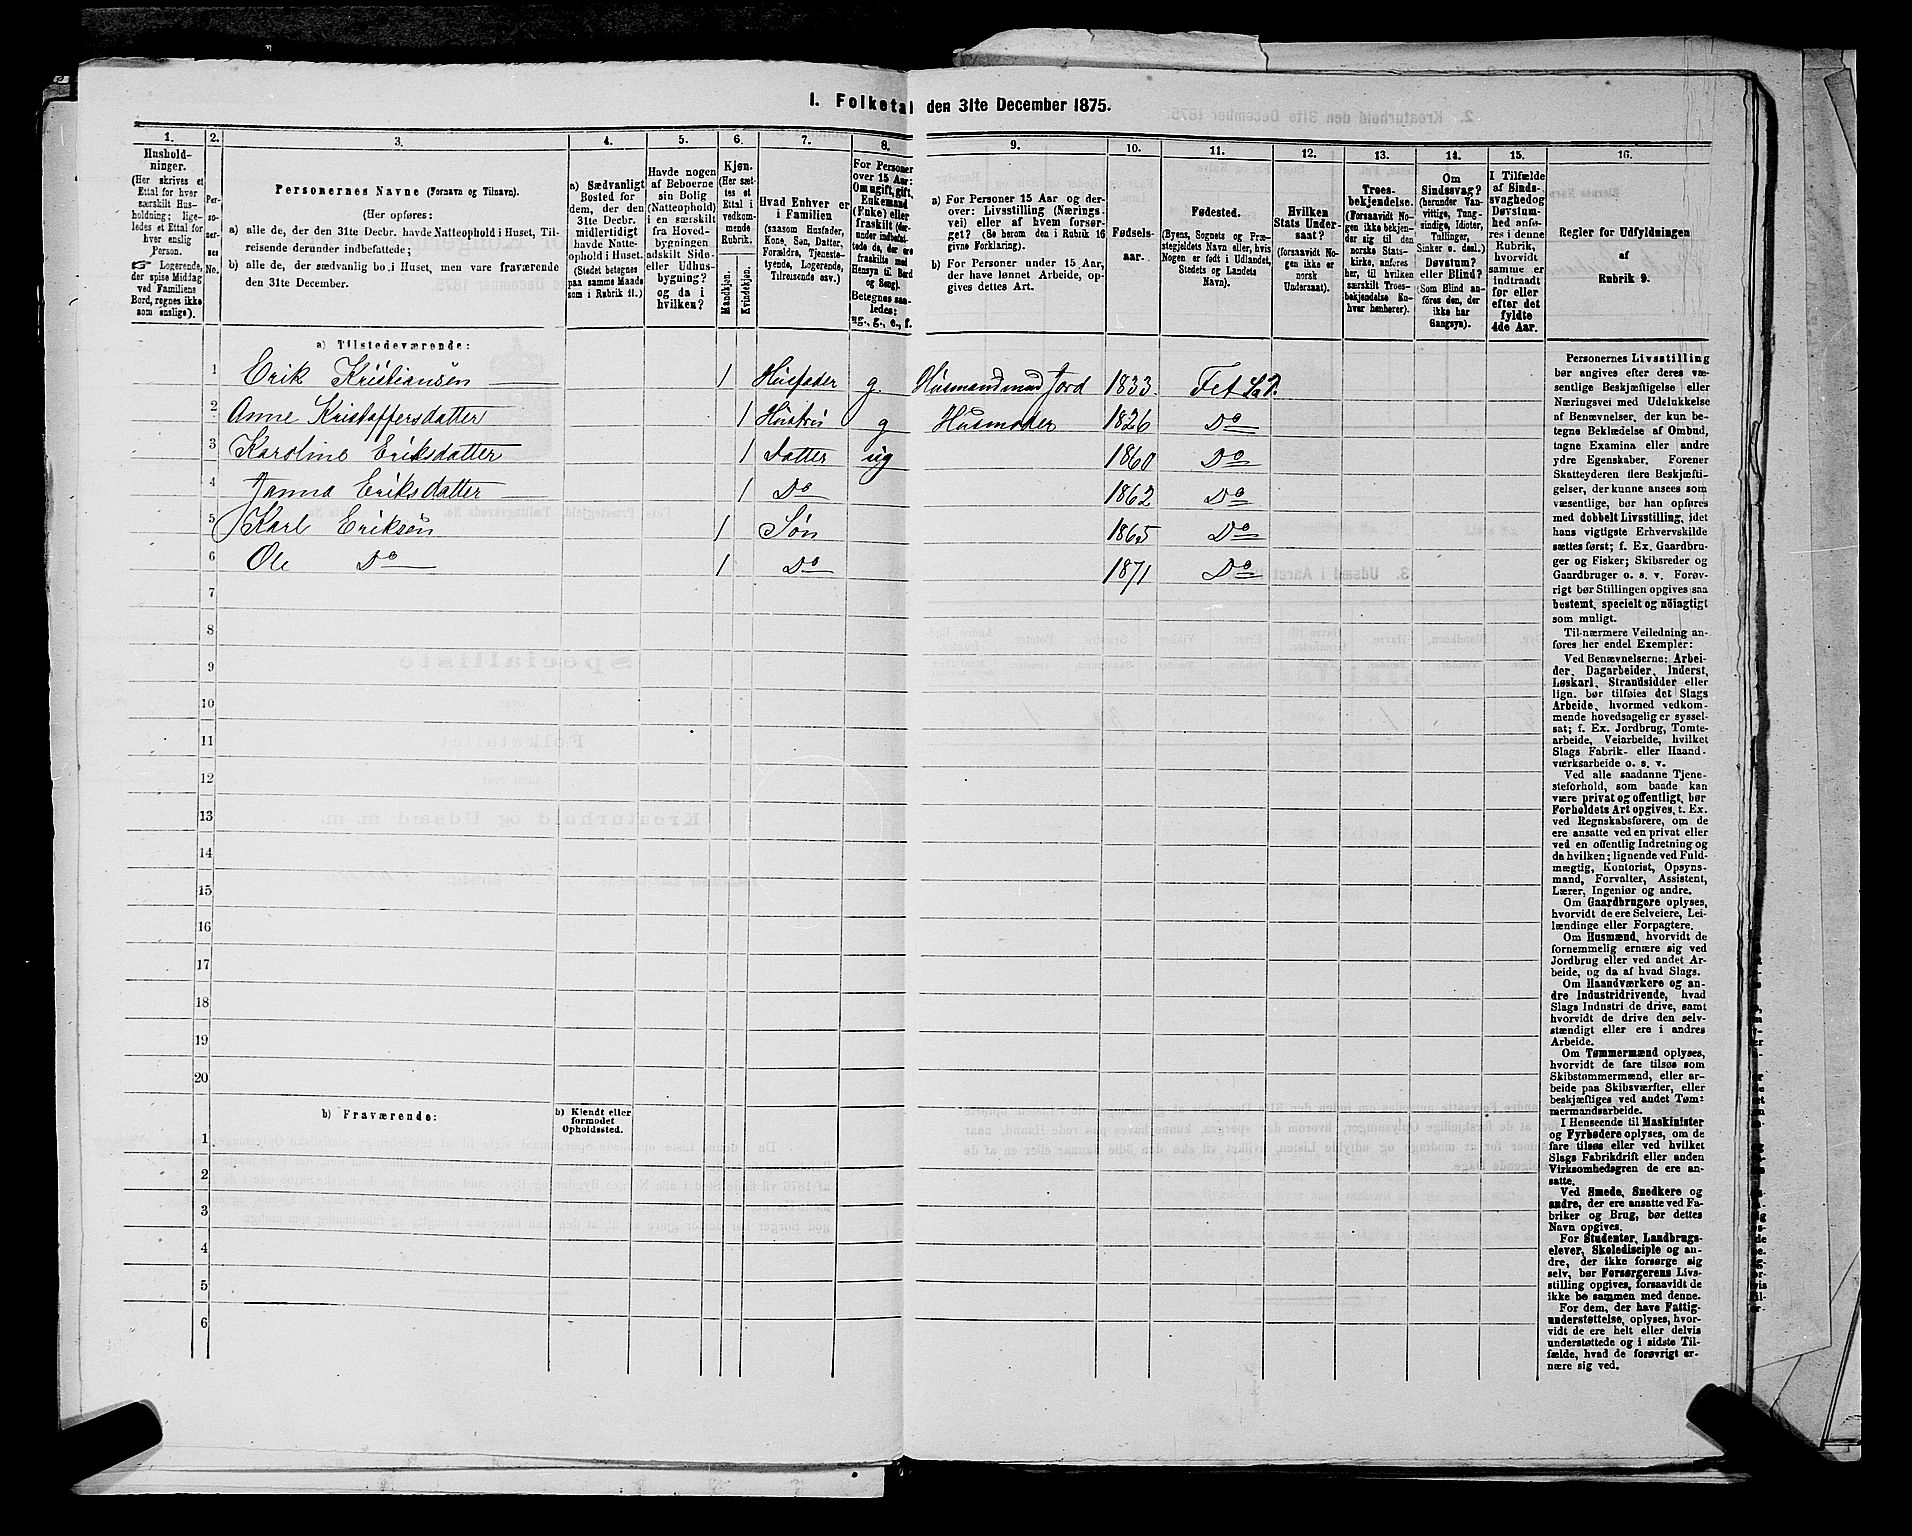 1. Folketal den 31te December 1875.
1. 2. 3. 4. 5. 6. 7. 8. 9. 10. 11. 12. 13. 14. 15. 16.
Hushold-
ninger.
(Her skrives et
Ettal for hver
særskilt Hus-
holdning; lige-
ledes et Ettal for
hver enslig
Person.
☞ Logerende,
der spise Middag
ved Familiens
Bord, regnes ikke
som enslige).
Per-
so-
ner-
nes
No.
Personernes Navne (Fornavn og Tilnavn).
(Her opføres:
a) alle de, der den 31te Decbr. havde Natteophold i Huset, Til-
reisende derunder indbefattede;
b) alle de, der sædvanlig bo i Huset, men vare fraværende
den 31te December.
a) Sædvanligt
Bosted for
dem, der den
31te Decbr.
midlertidigt
havde Natte-
ophold i Huset.
(Stedet betegnes
paa samme Maade
som i Rubrik 11.)
Havde nogen
af Beboerne
sin Bolig
(Natteophold)
i en særskilt
fra Hoved-
bygningen
adskilt Side-
eller Udhus-
bygning?
og da i
hvilken?
Kjøn.
(Her sæt-
tes et
Ettal i
vedkom-
mende
Rubrik.
Mandkjøn.
Kvindekjøn.
Hvad Enhver er
i Familien
(saasom Husfader,
Kone, Søn, Datter,
Forældre, Tjeneste-
tyende, Logerende,
Tilreisende osv.)
For Personer
over 15 Aar:
Om ugift, gift,
Enkemand
(Enke) eller
fraskilt (der-
under indbefat-
tede de, der ere
fraskilte med
Hensyn til Bord
og Seng).
Betegnes saa-
ledes:
ug., g., e., f.
a) For Personer 15 Aar og der-
over: Livsstilling (Nærings-
vei) eller af hvem forsør-
get? (Se herom den i Rubrik 16
givne Forklaring).
b) For Personer under 15 Aar,
der have lønnet Arbeide, op-
gives dettes Art.
Fødsels-
aar.
Fødested.
(Byens, Sognets og Præ-
stegjeldets Navn eller, hvis
Nogen er født i Udlandet,
Stedets og Landets
Navn).
Hvilken
Stats Under-
saat?
(forsaavidt No-
gen ikke er
norsk
Undersaat).
Troes-
bekjendelse.
(Forsaavidt No-
gen ikke bekjen-
der sig til den
norske Stats-
kirke, anføres
her, til hvilken
særskilt Troes-
bekjendelse En-
hver henhører).
Om
Sindssvag?
(herunder Van-
vittige, Tung-
sindige, Idioter,
Tullinger,
Sinker o. desl.)
Døvstum?
eller Blind?
(Som Blind an-
føres den, der
ikke har
Gangsyn).
I Tilfælde
af Sinds-
svaghed og
Døvstum-
hed anfø-
res i denne
Rubrik,
hvorvidt
samme er
indtraadt
før eller
efter det
fyldte
4de Aar.
Regler for Udfyldningen
af
Rubrik 9.
a) Tilstedeværende:
1 Erik Kristiansen 1 Husfader g Husmand med Jord 1833. Fet
2 Anne Kristoffersdatter 1 Hustru g Husmoder 1826 Do
3 Karoline Eriksdatter 1 Datter ug 1860 Do
4 Janna Eriksdatter 1 Do 1862 Do
5 Karl Eriksen 1 Søn 1865 Do
6 Ole Do 1 Do 1871 Do
7
8
9
10
11
12
13
14
15
16
17
18
19
20
b) Fraværende:
b) Kjendt eller
formodet
Opholdssted.
1
2
3
4
5
6
Personernes Livsstilling
bør angives efter deres væ-
sentlige Beskjæftigelse eller
Næringsvei med Udelukkelse
af Benævnelser, der kun be-
tegne Beklædelse af Ombud,
tagne Examina eller andre
ydre Egenskaber. Forener
Skatteyderen flere Beskjæfti-
gelser, der kunne ansees som
væsentlige, bør han opføres
med dobbelt Livsstilling, idet
hans vigtigste Erhvervskilde
sættes først; f. Ex. Gaardbru-
ger og Fisker; Skibsreder og
Gaardbruger o. s. v. Forøv-
rigt bør Stillingen opgives saa
bestemt, specielt og nöiagtigt
som muligt.
Til nærmere Veiledning an-
føres her endel Exempler:
Ved Benævnelserne: Arbei-
der, Dagarbeider, Inderst,
Løskarl, Strandsidder eller
lign. bør tilføies det Slags
Arbeide, hvormed vedkom-
mende hovedsagelig er syssel-
sat; f. Ex. Jordbrug, Tomte-
arbeide, Veiarbeide, hvilket
Slags Fabrik- eller Haand-
værksarbeide o. s. v.
Ved alle saadanne Tjene-
steforhold, som baade kan
være privat og offentligt, bør
Forholdets Art opgives, t. Ex.
ved Regnskabsførere, om de
ere ansatte ved en privat eller
ved en offentlig Indretning og
da hvilken; lignende ved Fuld-
mægtig, Kontorist, Opsyns-
mand, Forvalter, Assistent,
Lærer, Ingeniør og andre.
Om Gaardbrugere oplyses,
hvorvidt de ere Selveiere, Lei-
lændinge eller Forpagtere.
Om Husmænd, hvorvidt de
fornemmelig ernære sig ved
Jordbrug eller ved andet Ar-
beide, og da af hvad Slags.
Om Haandværkere og an-
dre Industridrivende, hvad
Slags Industri de drive, samt
hvorvidt de drive den selv-
stændigt eller ere i andres
Arbeide.
Om Tømmermænd oplyses,
hvorvidt de fare tilsøs som
Skibstømmermænd, eller ar-
beide paa Skibsværfter, eller
beskjæftiges ved andet Tøm-
mermandsarbeide.
I Henseende til Maskinister
og Fyrbødere oplyses, om de
fare tilsøs eller ved hvilket
Slags Fabrikdrift eller anden
Virksomhedsgren de ere an-
satte.
Ved Smede, Snedkere og
andre, der ere ansatte ved Fa-
briker og Brug, bør dettes
Navn opgives.
For Studenter, Landbrugs-
elever, Skoledisciple og an-
dre, der ikke forsørge sig
selv, bør Forsørgerens Livs-
stilling opgives, forsaavidt de
ikke bo sammen med denne.
For dem, der have Fattig-
understøttelse, oplyses, hvor-
vidt de ere helt eller delvis
understøttede og i sidste Til-
fælde, hvad de forøvrigt er-
nære sig ved.